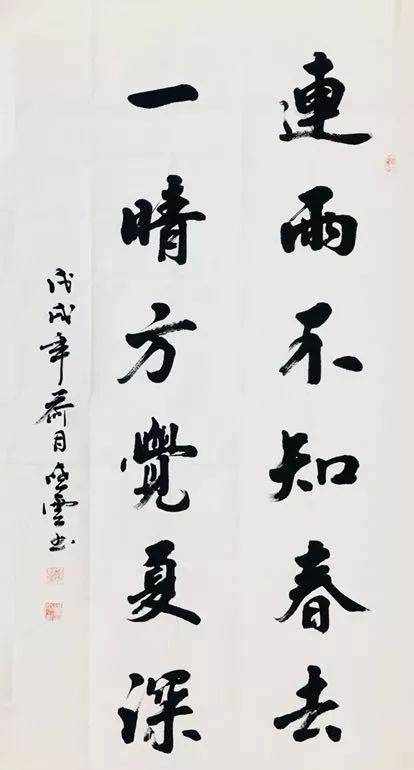 連雨不知春去
一晴方覺夏深
戊戌年荷月曉雲书